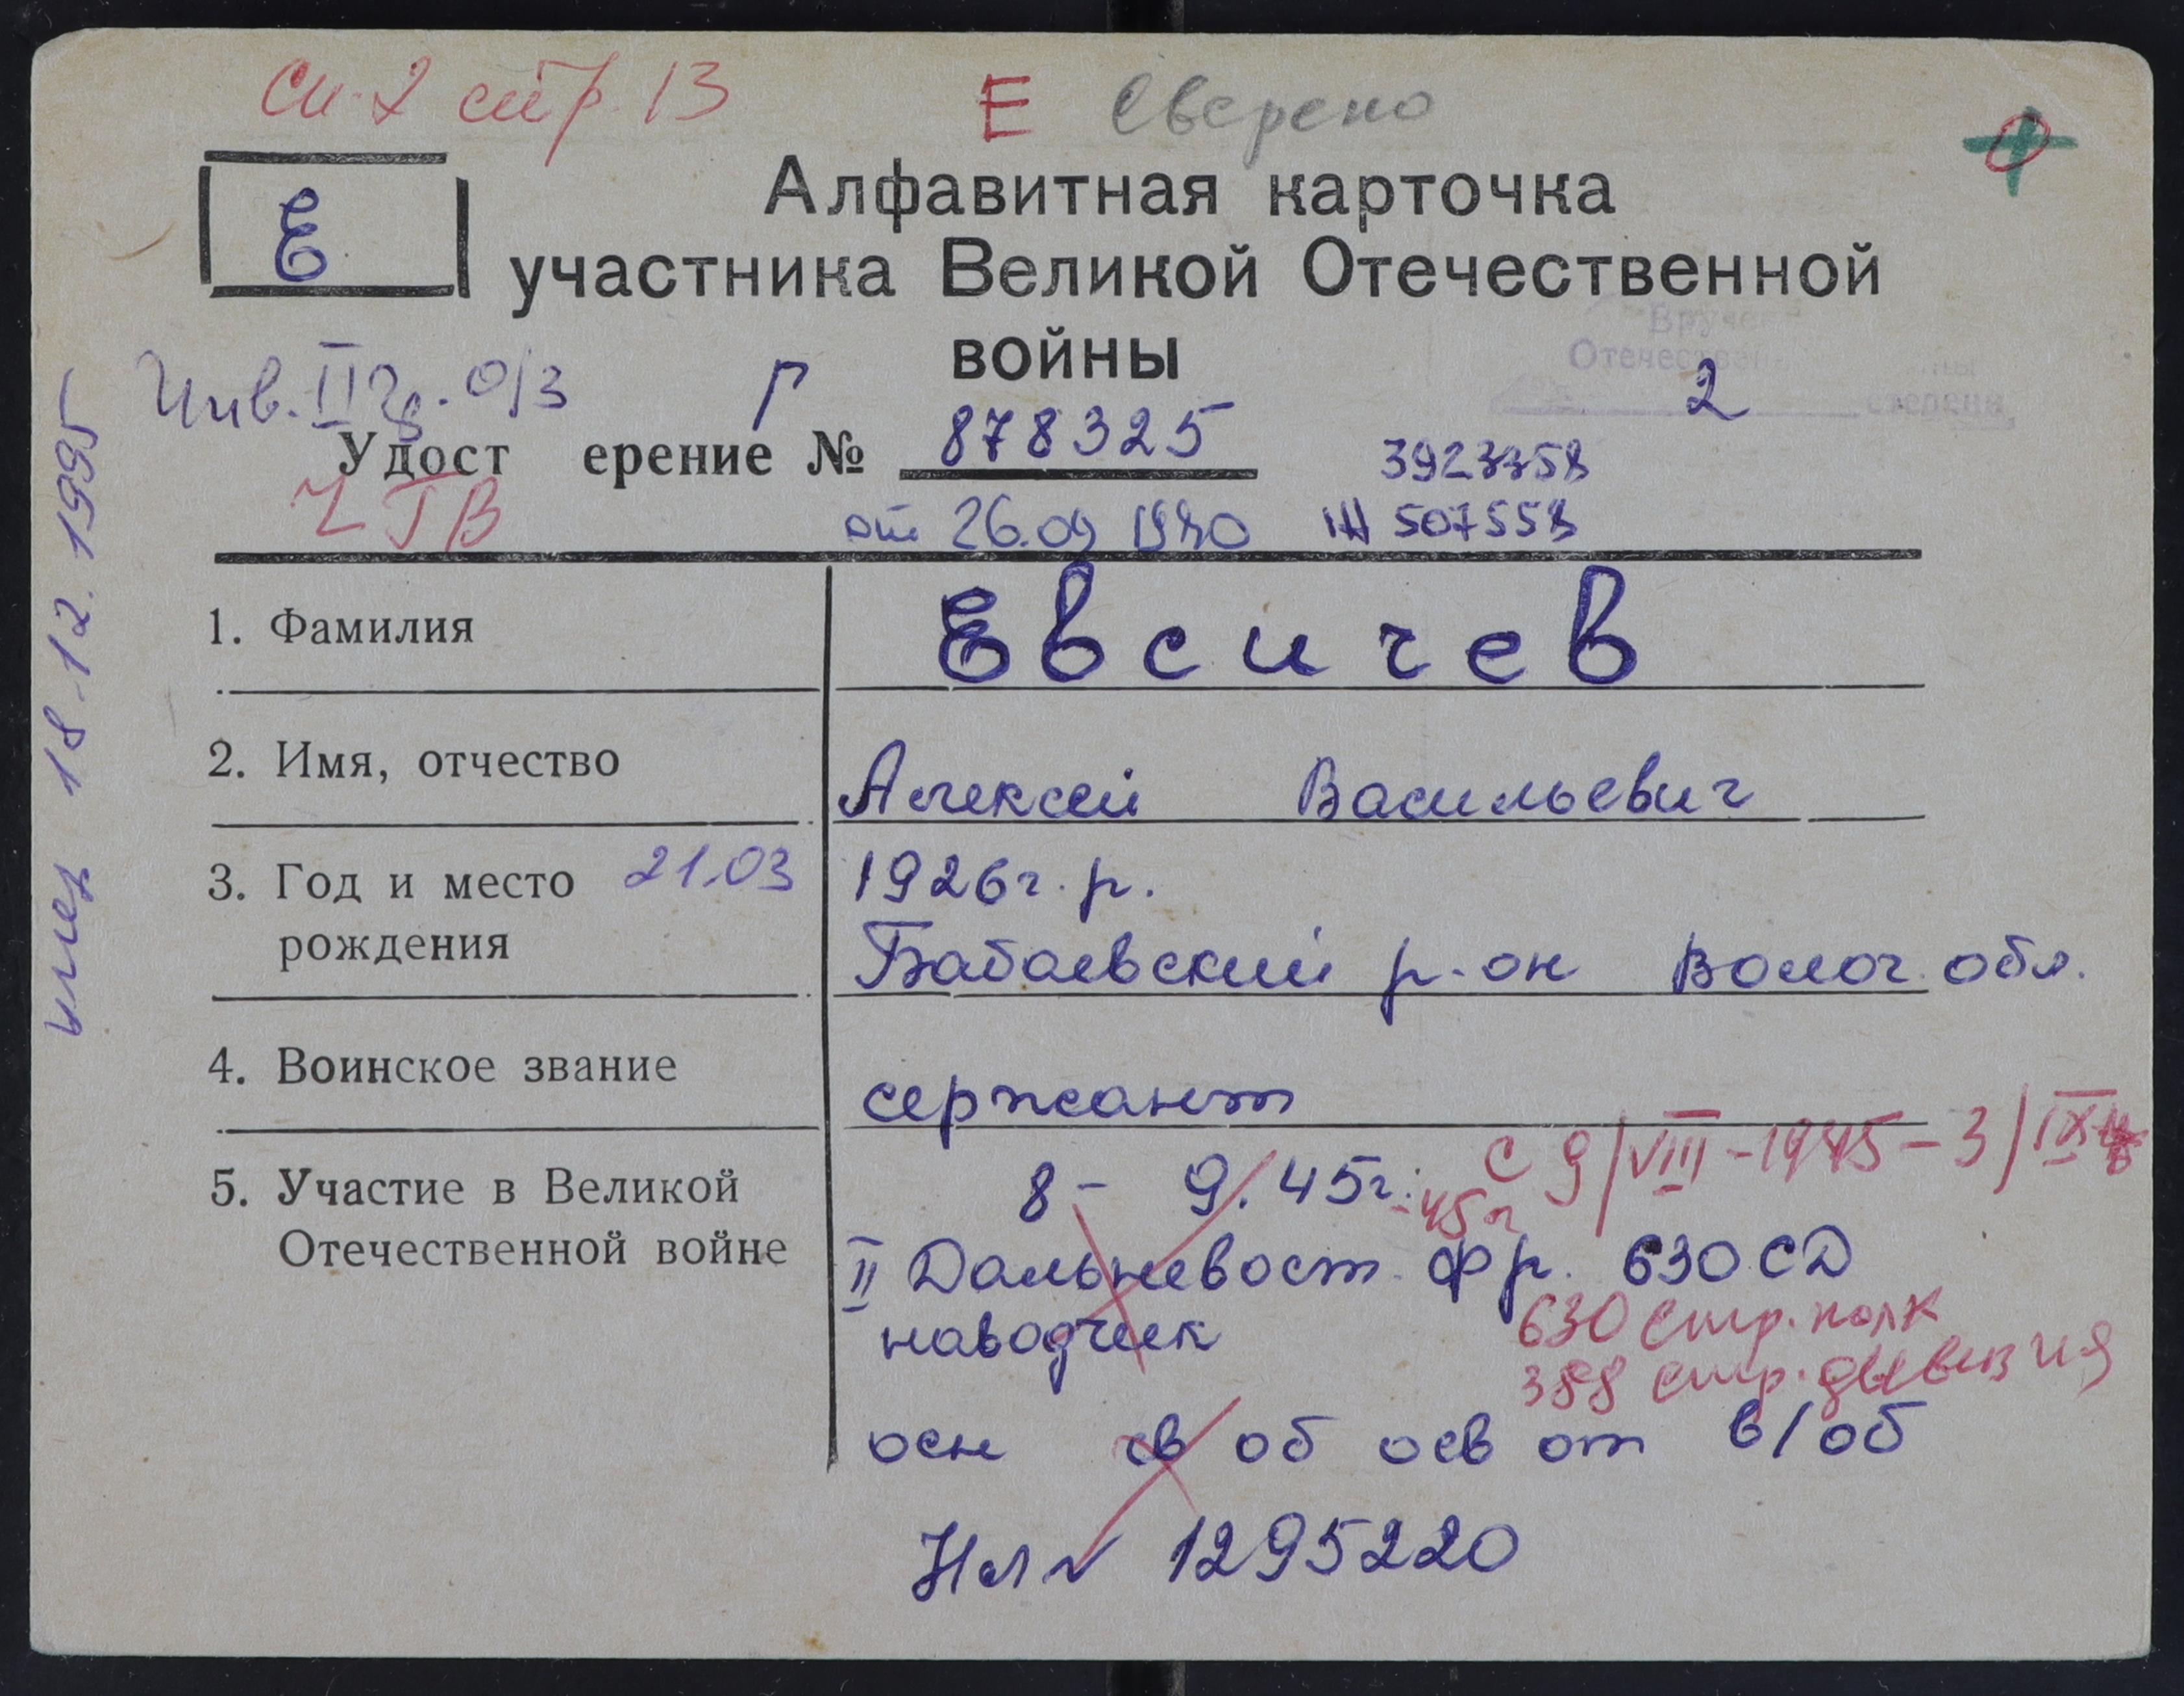 Сп-2 стр. 13
Е Сверено
Е
Алфавитная карточка
участника Великой Отечественной
войны
Инв. II гр. о/з Г
Вручен
Отечествен ны
2 степени
Удост ерение № 878325
3923758
УТВ
от 26.09 1980 Н 507558
18.12.1995
1. Фамилия Евсичев
2. Имя, отчество Алексей Васильевич
3. Год и место 21.03 1926г.р.
рождения Бабаевский р-он Волог. обл.
4. Воинское звание сержант
5. Участие в Великой 8 - 9.45г. с 9/VIII-1945-3/IX
-45г
Отечественной войне II Дальневост. фр. 630 СД
наводчик 630 стр. полк
388 стр. дывизия
осн св об осв от в/об
Нл № 1295220